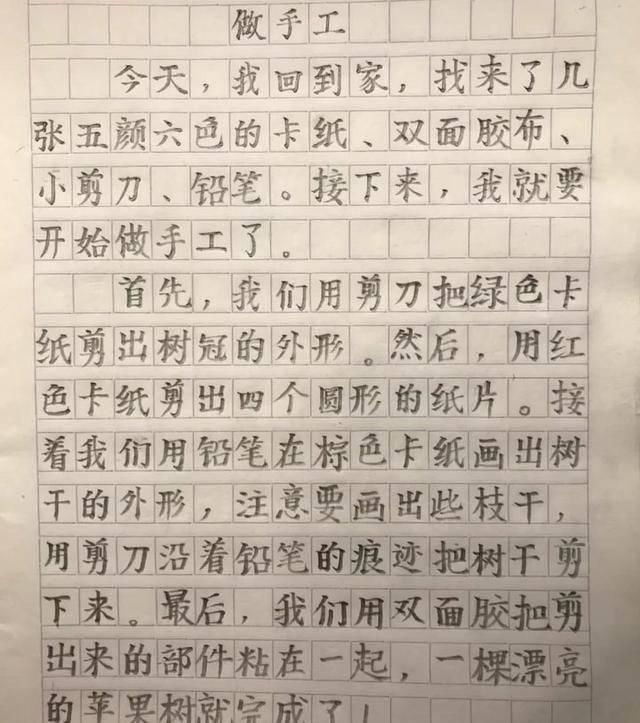 做手工
今天，我回到家，找来了几
张五颜六色的卡纸、双面胶布、
小剪刀、铅笔。接下来，我就要
开始做手工了。
首先，我们用剪刀把绿色卡
纸剪出树冠的外形。然后，用红
色卡纸剪出四个圆形的纸片。接
着我们用铅笔在棕色卡纸画出树
干的外形，注意要画出些枝干，
用剪刀沿着铅笔的痕迹把树干剪
下来。最后，我们用双面胶把剪
出来的部件粘在一起，一棵漂亮
的苹果树就完成了！